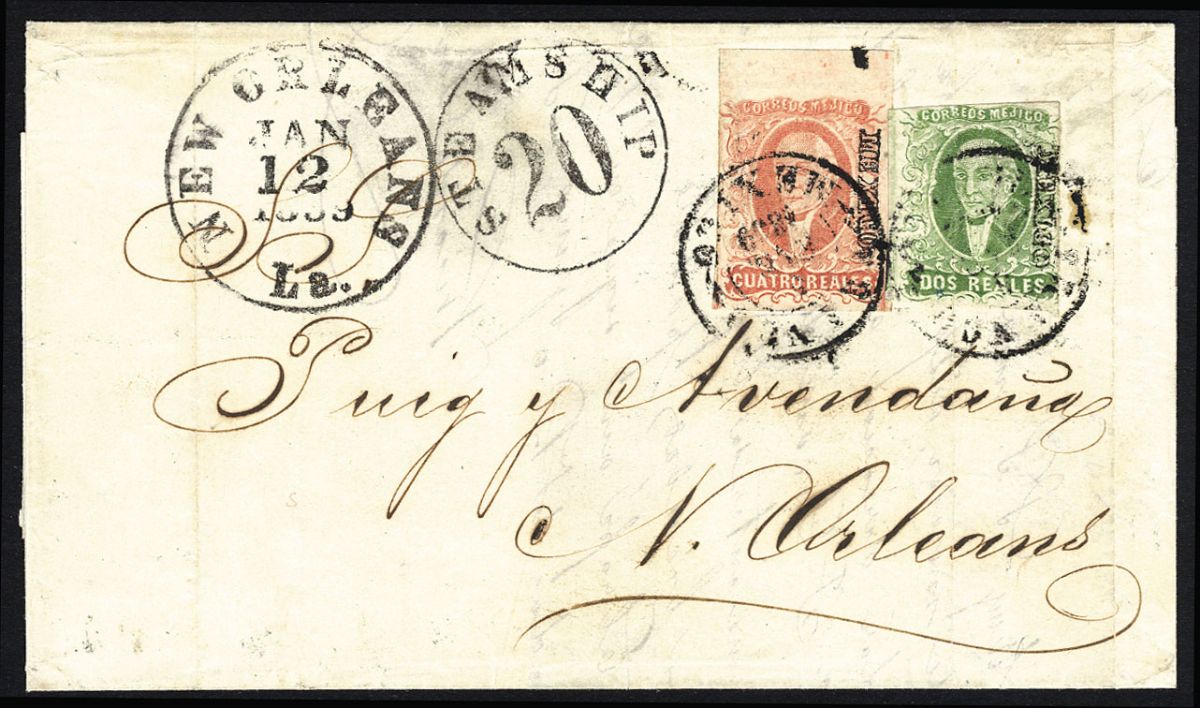 NEW ORLEANS
JAN
12
La.
STEAMSHIP
20
CORREOS MEJICO
CUATRO REALES
CORREOS MEJICO
DOS REALES
SS
Puig y Avendaño
N. Orleans